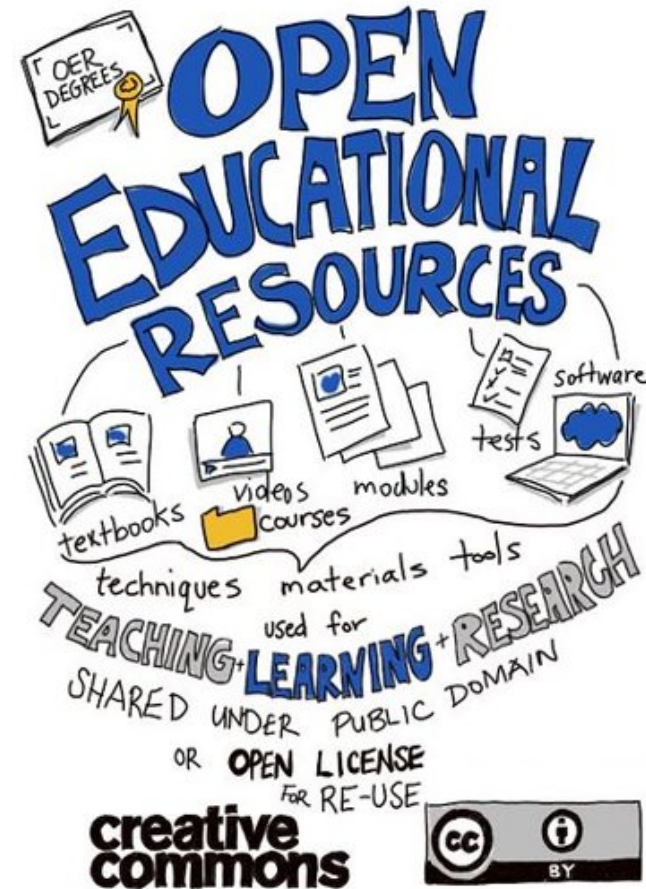 OER
DEGREES
OPEN
EDUCATIONAL
RESOURCES
textbooks
videos
courses
modules
tests
software
techniques materials tools
used for
TEACHING + LEARNING + RESEARCH
SHARED UNDER PUBLIC DOMAIN
OR OPEN LICENSE
FOR RE-USE
creative
commons
cc
BY